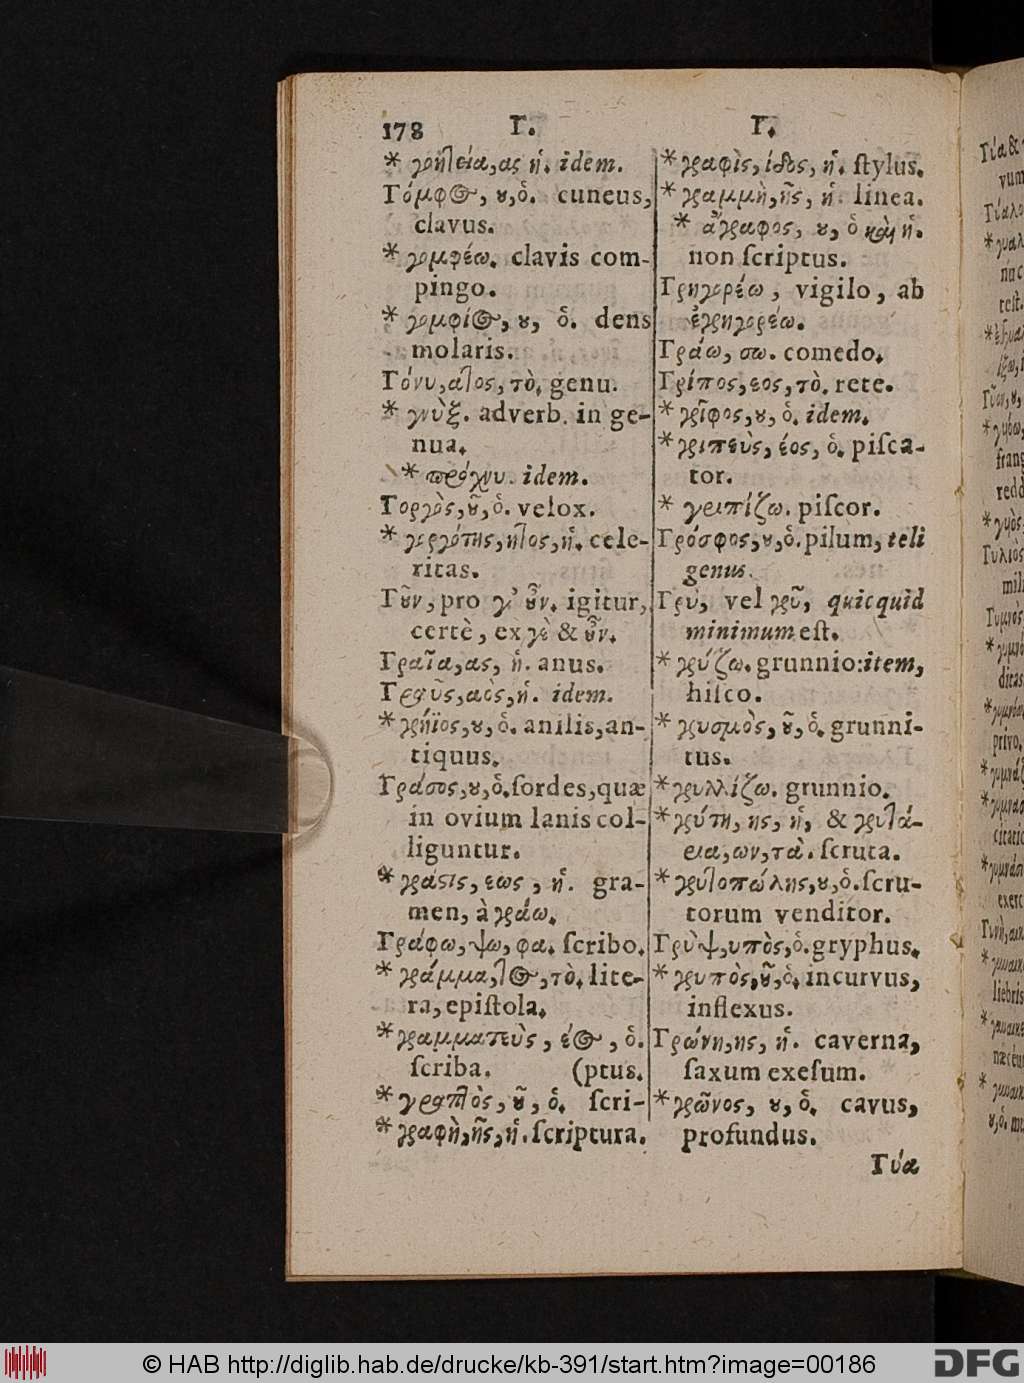 178 Γ. Γ.
* γοητεία, ας ἡ. idem.
Γόμφος, ου, ὁ. cuneus,
clavus.
* γομφέω. clavis com-
pingo.
* γομφίος, ου, ὁ. dens
molaris.
Γόνυ, ατος, τὸ. genu.
* γνὺξ. adverb. in ge-
nua.
* πρόχνυ. idem.
Γοργὸς, οῦ, ὁ. velox.
* γοργότης, ητος, ἡ. cele-
ritas.
Γοῦν, pro γ’ οὖν. igitur,
certè, ex γὲ & οὖν.
Γραῖα, ας, ἡ. anus.
Γραῦς, αὸς, ἡ. idem.
* γρήϊος, ου, ὁ. anilis, an-
tiquus.
Γράσος, ου, ὁ. ſordes, quæ
in ovium lanis col-
liguntur.
* γράσις, εως, ἡ. gra-
men, à γράω.
Γράφω, ψω, φα. ſcribo.
* γράμμα, τος, τὸ. lite-
ra, epiſtola.
* γραμματεὺς, έος, ὁ.
ſcriba. (ptus.
* γραπτὸς, οῦ, ὁ. ſcri-
* γραφὴ, ῆς, ἡ. ſcriptura.
* γραφὶς, ίδος, ἡ. ſtylus.
* γραμμὴ, ῆς, ἡ. linea.
* ἄγραφος, ου, ὁ καὶ ἡ.
non ſcriptus.
Γρηγορέω, vigilo, ab
ἐγρηγορέω.
Γράω, σω. comedo.
Γρίπος, εος, τὸ. rete.
* γρῖφος, ου, ὁ. idem.
* γριπεὺς, έος, ὁ. piſca-
tor.
* γριπίζω. piſcor.
Γρόσφος, ου, ὁ. pilum, teli
genus.
Γρὺ, vel γρῦ, quicquid
minimum eſt.
* γρύζω. grunnio: item,
hiſco.
* γρυσμὸς, οῦ, ὁ. grunni-
tus.
* γρυλλίζω. grunnio.
* γρύτη, ης, ἡ, & γρυτά-
εια, ων, τὰ. ſcruta.
* γρυτοπώλης, ου, ὁ. ſcru-
torum venditor.
Γρὺψ, υπὸς, ὁ. gryphus.
* γρυπὸς, οῦ, ὁ. incurvus,
inflexus.
Γρώνη, ης, ἡ. caverna,
ſaxum exeſum.
* γρῶνος, ου, ὁ. cavus,
profundus.
Γύα
© HAB http://diglib.hab.de/drucke/kb-391/start.htm?image=00186
DFG